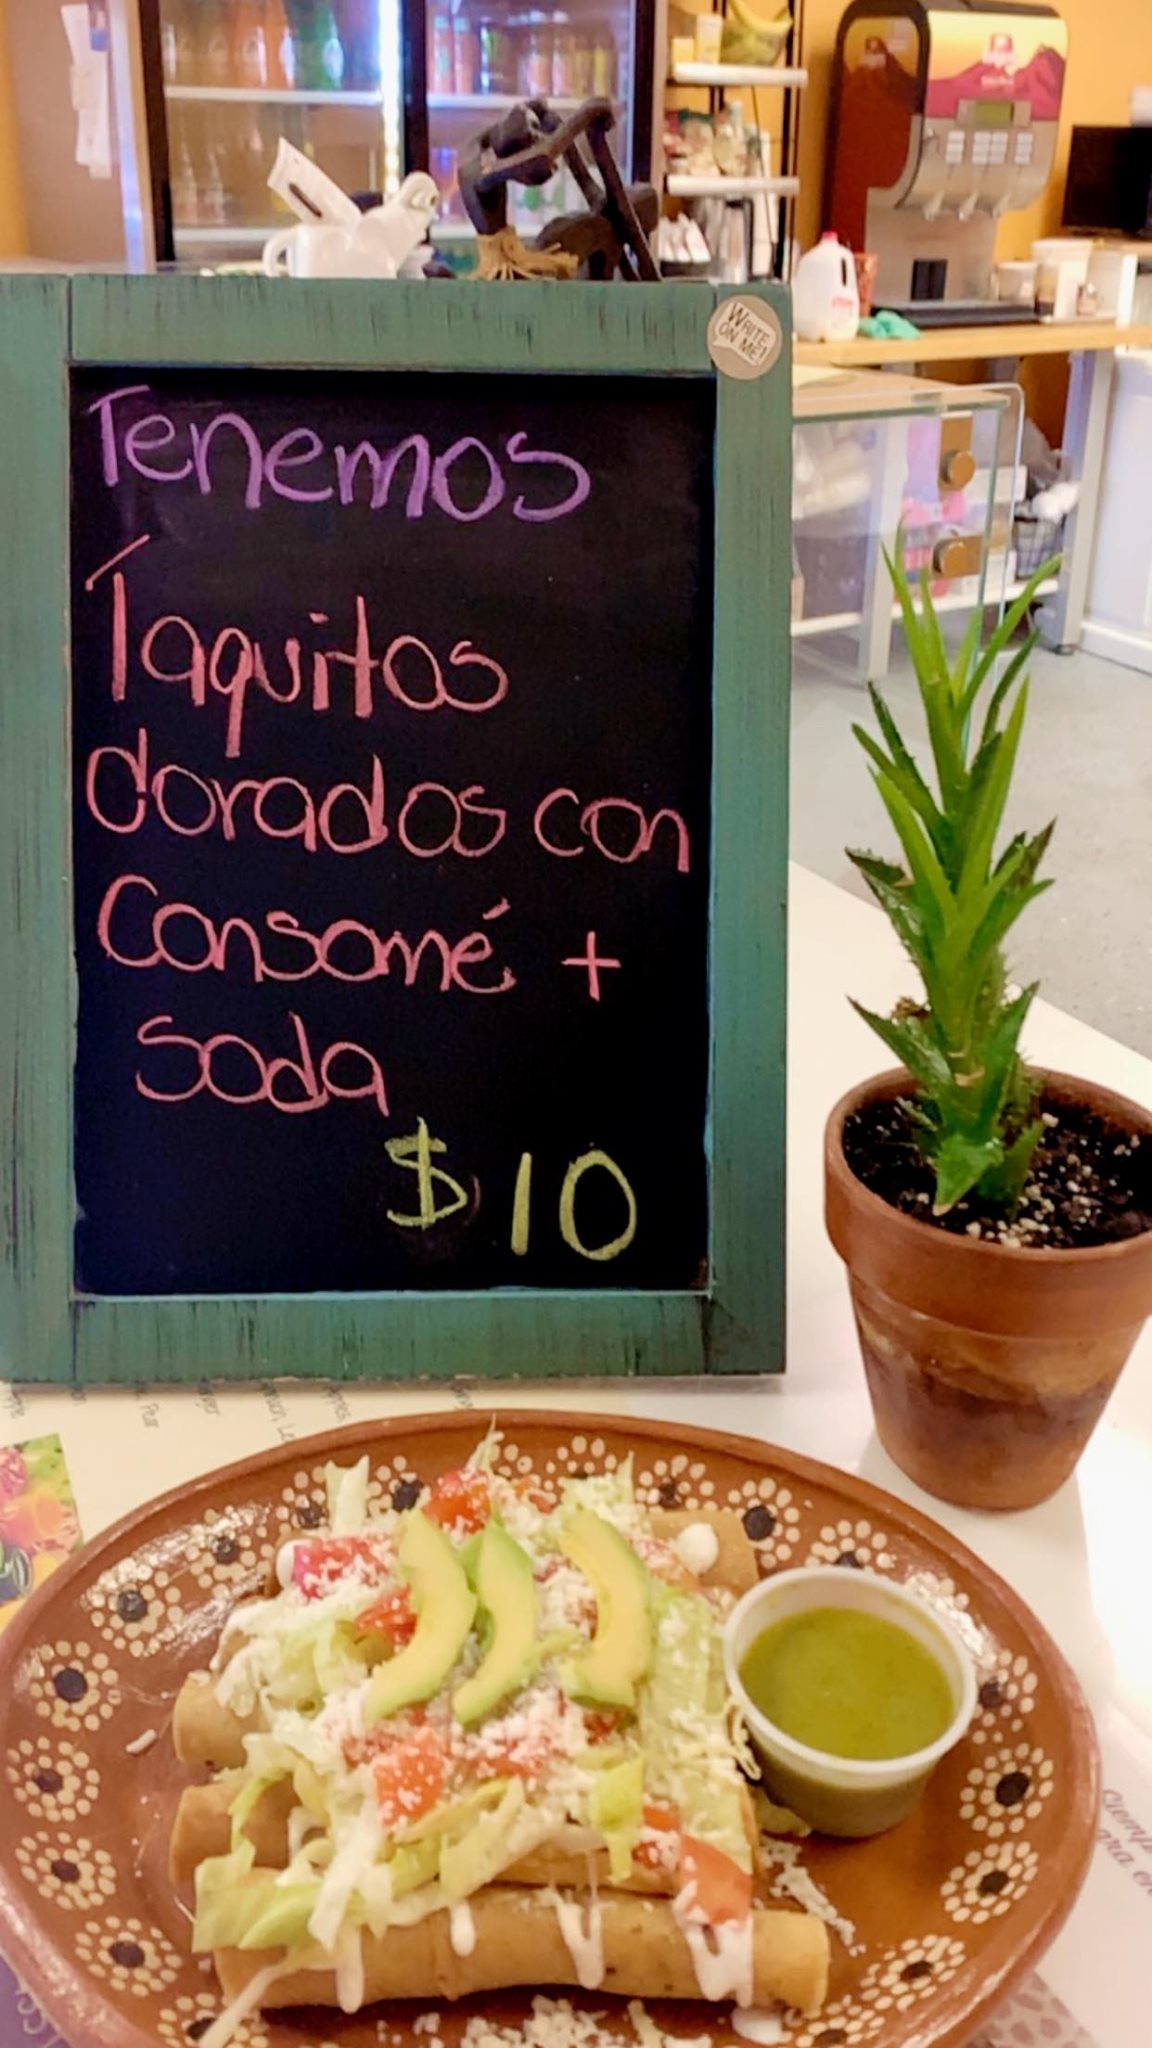 WRITE
ON ME!
Tenemos
Taquitos
dorados con
Consomé +
soda
$10